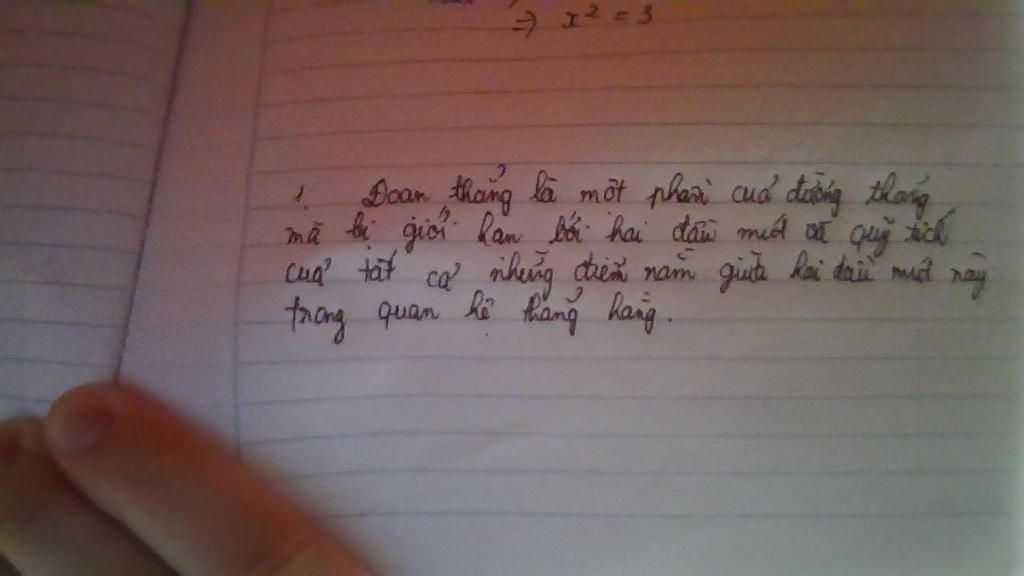 ⇒ x² = 3
1. Đoạn thẳng là một phần của đường thẳng
mà bị giới hạn bởi hai đầu mút và quỹ tích
của tất cả những điểm nằm giữa hai đầu mút này
trong quan hệ thẳng hàng.